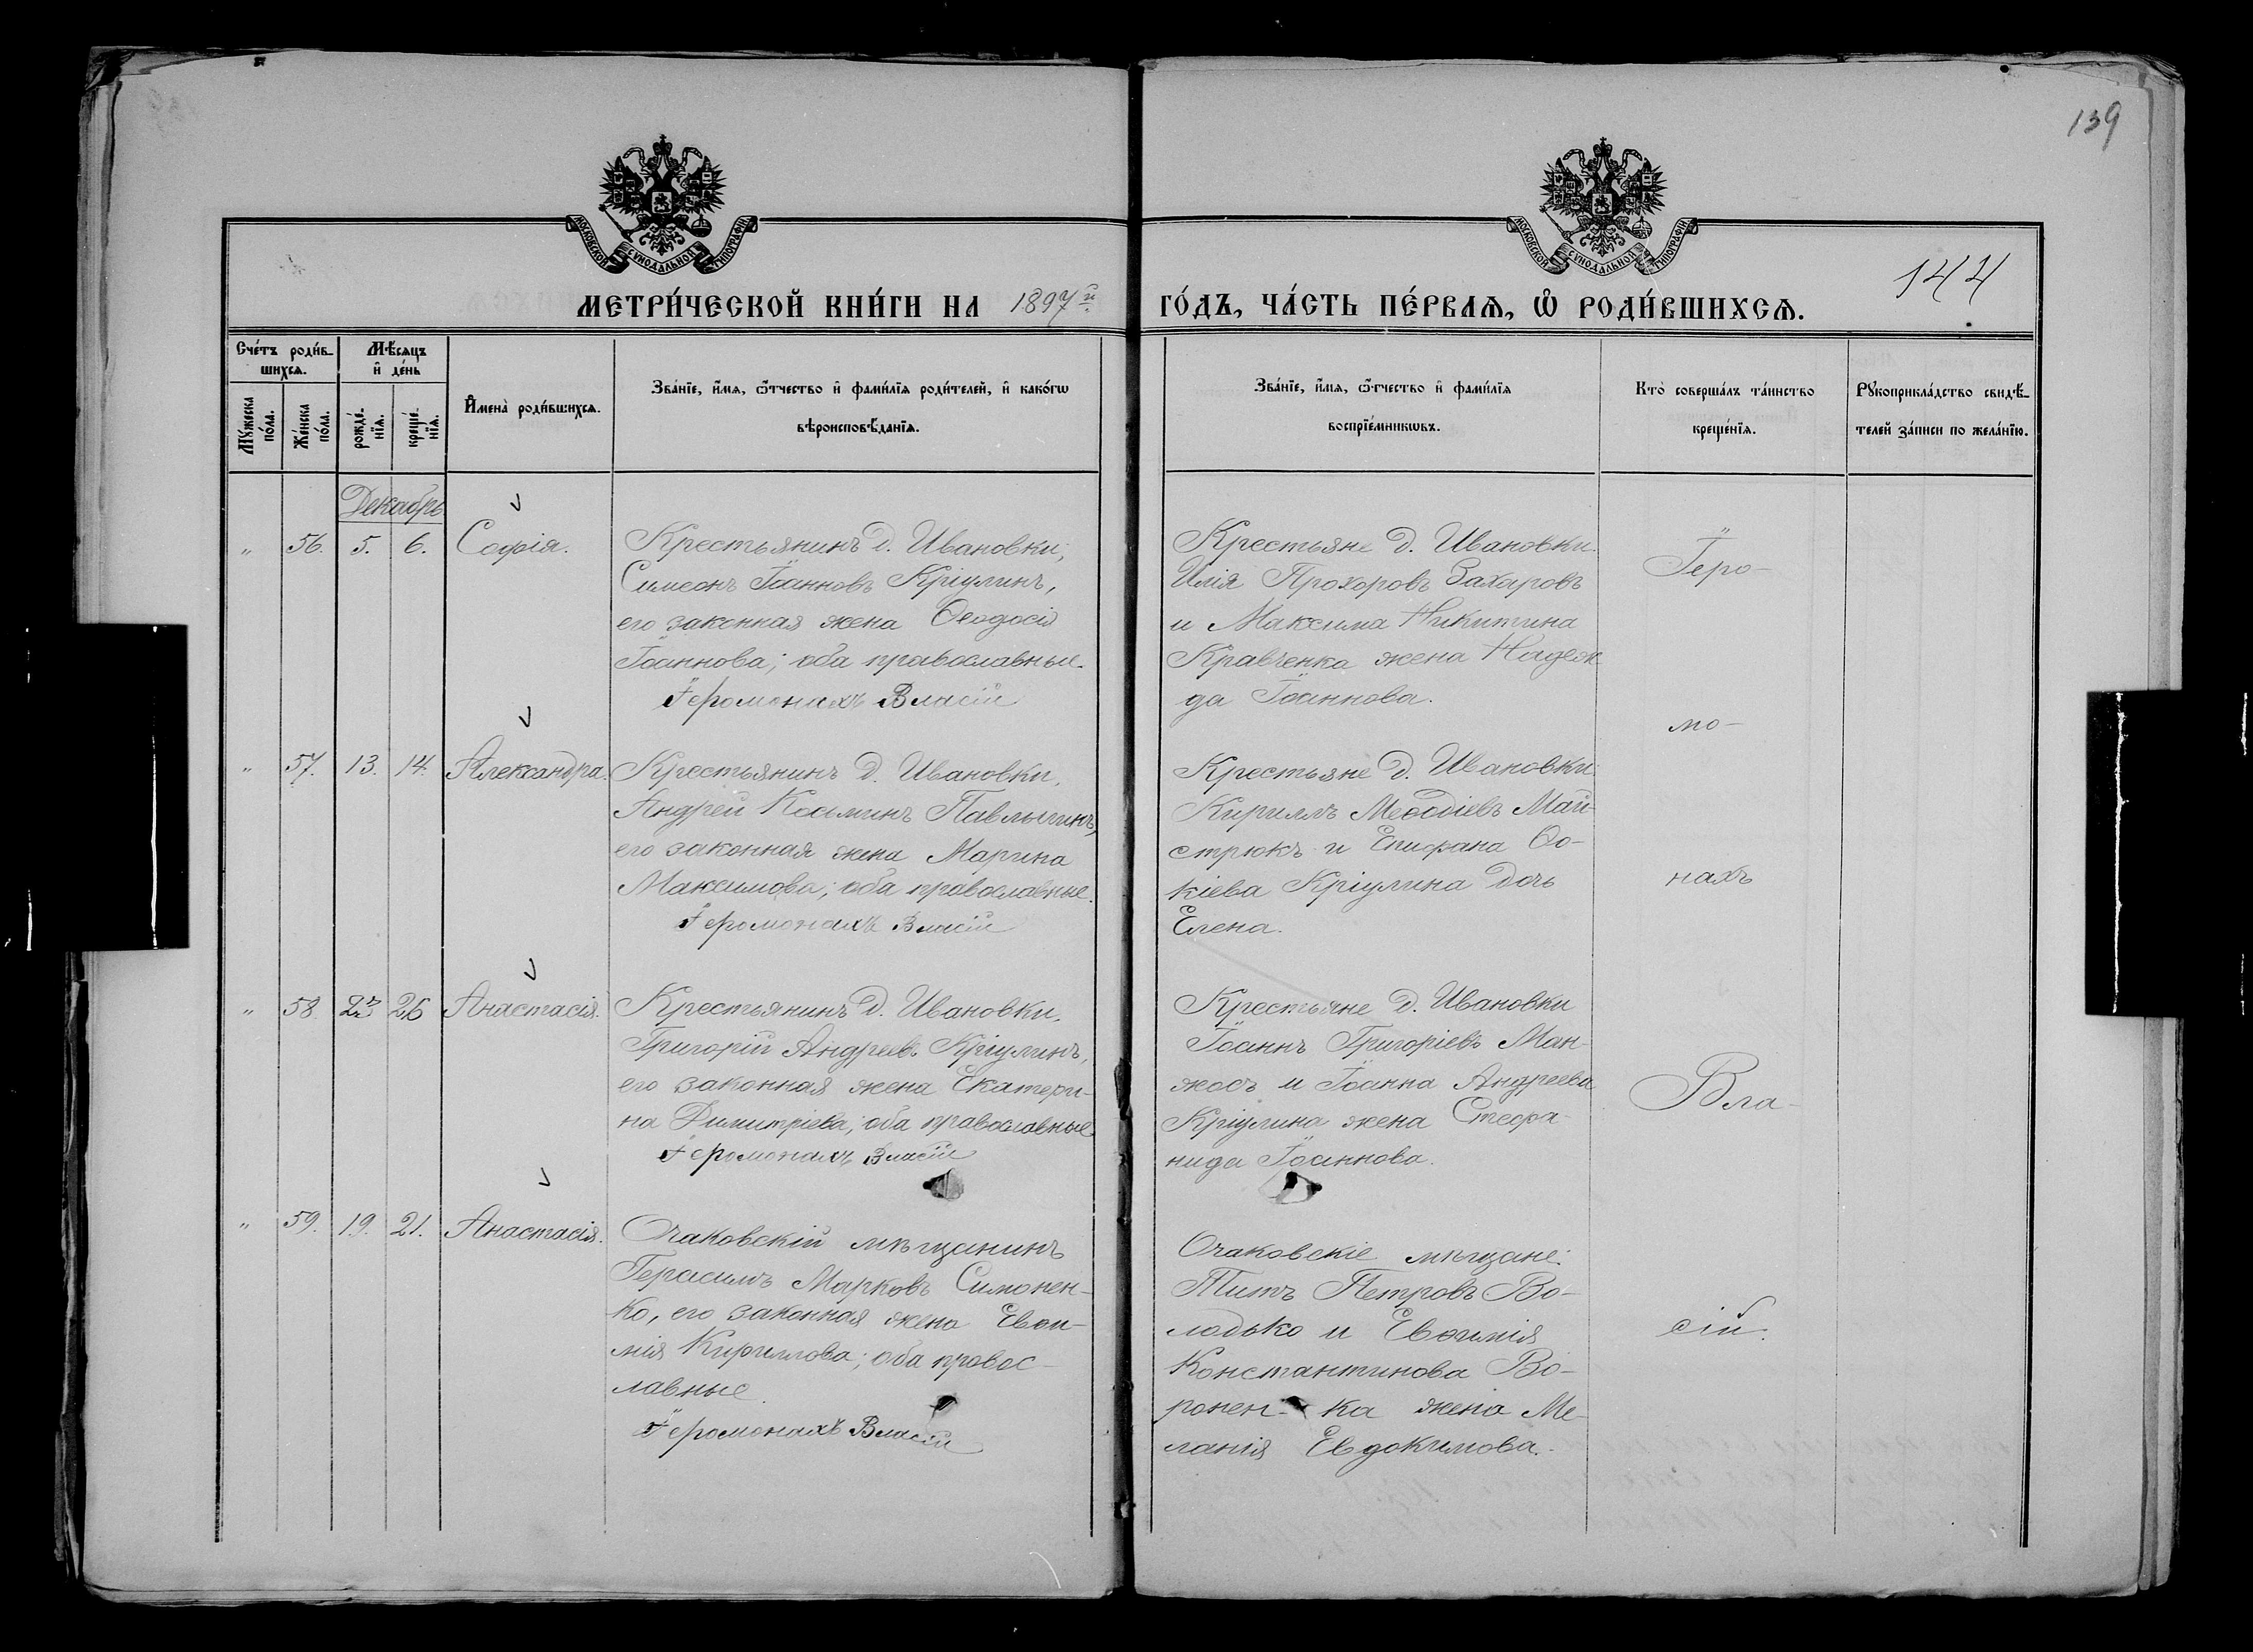 139
МОСКОВСКОЙ СѴНОДАЛЬНОЙ ТИПОГРАФІИ
МОСКОВСКОЙ СѴНОДАЛЬНОЙ ТИПОГРАФІИ
144
МЕТРИ́ЧЕСКОЙ КНИ́ГИ НА 1897й ГО́ДЪ, ЧА́СТЬ ПЕ́РВАѦ, Ѽ РОДИ́ВШИХСѦ.
Сче́тъ роди́в-
шихсѧ.
Мꙋ́жеска
по́ла.
Же́нска
по́ла.
Мѣ́сѧцъ
и҆ де́нь
рожде́-
нїѧ.
креще́-
нїѧ.
И҆мена̀ роди́вшихсѧ.
Зва́нїе, и҆́мѧ, ѻ҆́тчество и҆ фами́лїѧ роди́телей, и҆ како́гѡ
вѣроисповѣ́данїѧ.
Зва́нїе, и҆́мѧ, ѻ҆́тчество и҆ фами́лїѧ
воспрїе́мникѡвъ.
Кто̀ соверша́лъ та́инство
креще́нїѧ.
Рꙋкоприкла́дство свидѣ́-
телей за́писи по жела́нїю.
Декабрь
" 56. 5. 6. Софія.
Крестьянинъ д. Ивановки,
Симеонъ Іоанновъ Кріулинъ,
его законная жена Ѳеодосія
Іоаннова; оба православные.
Іеромонахъ Власій
Крестьяне д. Ивановки:
Илія Прохоровъ Захаровъ
и Максима Никитина
Кравченка жена Надеж
да Іоаннова.
" 57. 13. 14. Александра.
Крестьянинъ д. Ивановки,
Андрей Косьминъ Павлычинъ,
его законная жена Марина
Максимова; оба православные.
Іеромонахъ Власій
Крестьяне д. Ивановки:
Кириллъ Меѳодіевъ Май-
стрюкъ и Епифана Ѳо-
кіева Кріулина дочь
Елена.
" 58 26 Анастасія.
Крестьянинъ д. Ивановки,
Григорій Андреевъ Кріулинъ,
его законная жена Екатери-
на Димитріева; оба православные
Іеромонахъ Власій
Крестьяне д. Ивановки
Іоаннъ Григоріевъ Ман-
жосъ и Іоанна Андреева
Кріулина жена Стефа-
нида Іоаннова.
" 59. 19. 21. Анастасія.
Очаковскій мѣщанинъ
Герасимъ Марковъ Симонен-
ко, его законная жена Евѳи-
мія Кириллова; оба правос-
лавные.
Іеромонахъ Власій
Очаковскіе мѣщане:
Титъ Петровъ Во-
лодько и Евѳимія
Константинова Во-
ронен- ка жена Ме-
ланія Евдокимова.
Іеро-
мо-
нахъ
Вла-
сій.